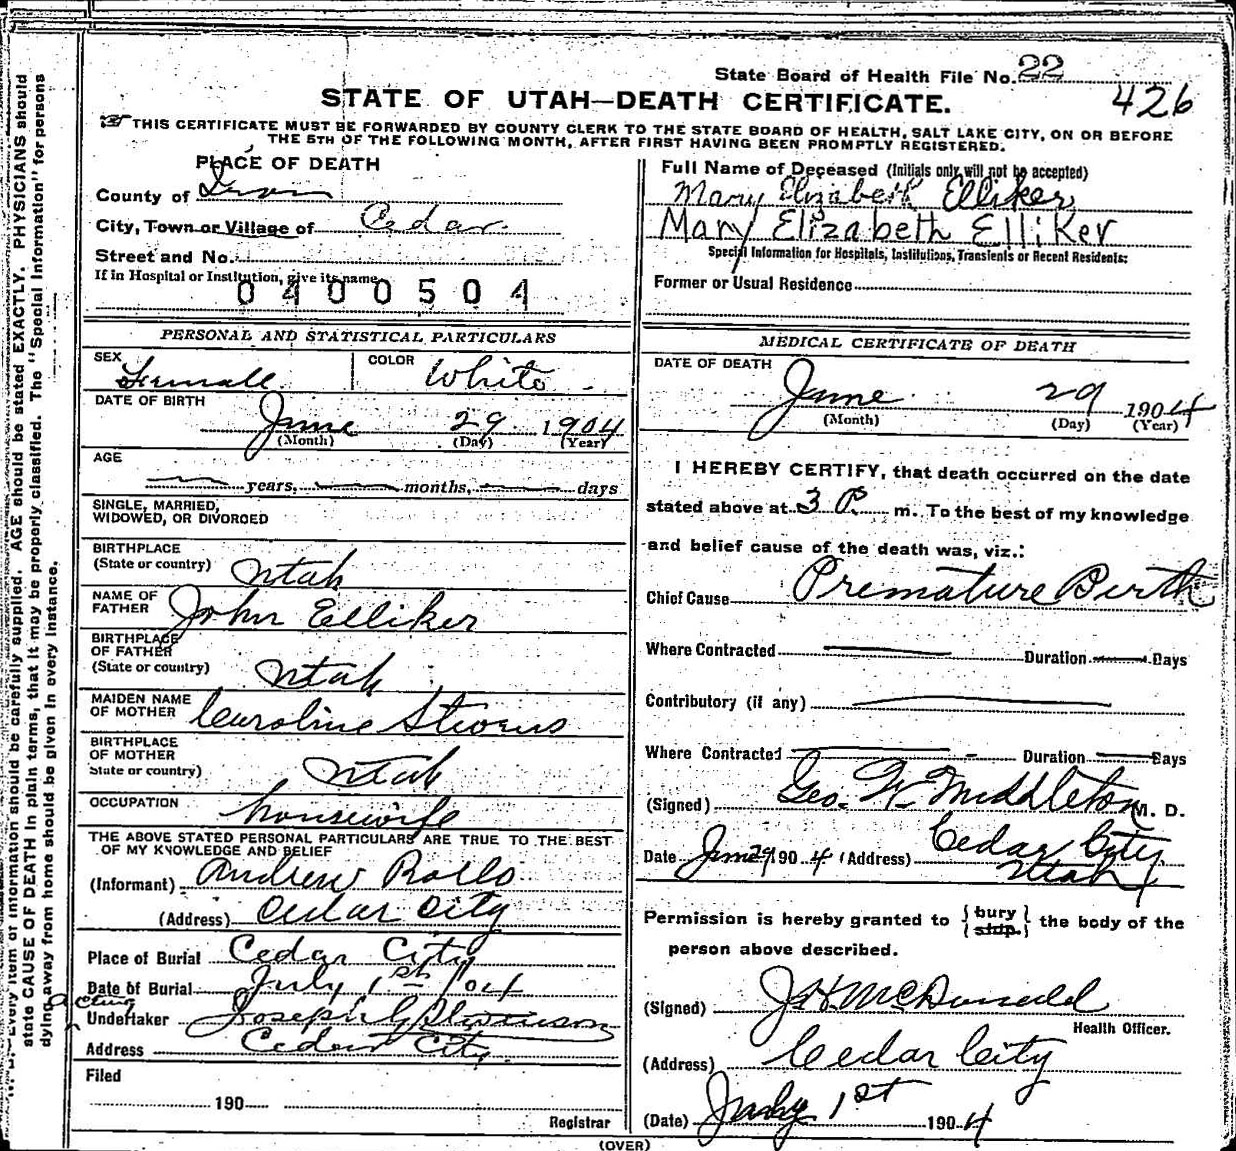 State Board of Health File No. 22
426
STATE OF UTAH—DEATH CERTIFICATE.
THIS CERTIFICATE MUST BE FORWARDED BY COUNTY CLERK TO THE STATE BOARD OF HEALTH, SALT LAKE CITY, ON OR BEFORE
THE 5TH OF THE FOLLOWING MONTH, AFTER FIRST HAVING BEEN PROMPTLY REGISTERED.
PLACE OF DEATH
County of Iron
City, Town or Village of Cedar
Street and No.
If in Hospital or Institution, give its name
0400504
Full Name of Deceased (Initials only will not be accepted)
Mary Elizabeth Elliker
Mary Elizabeth Elliker
Special Information for Hospitals, Institutions, Transients or Recent Residents:
Former or Usual Residence
PERSONAL AND STATISTICAL PARTICULARS
SEX Female COLOR White
DATE OF BIRTH
June 29 1904
(Month) (Day) (Year)
AGE
years, months, days
SINGLE, MARRIED,
WIDOWED, OR DIVORCED
BIRTHPLACE
(State or country) Utah
NAME OF
FATHER John Elliker
BIRTHPLACE
OF FATHER
(State or country) Utah
MAIDEN NAME
OF MOTHER Caroline Stevens
BIRTHPLACE
OF MOTHER
State or country) Utah
OCCUPATION housewife
THE ABOVE STATED PERSONAL PARTICULARS ARE TRUE TO THE BEST
OF MY KNOWLEDGE AND BELIEF
(Informant) Andrew Rollo
(Address) Cedar City
Place of Burial Cedar City
Date of Burial July 1st /04
acting
Undertaker Joseph G Stevenson
Address Cedar City
Filed
190
Registrar
MEDICAL CERTIFICATE OF DEATH
DATE OF DEATH
June 29 1904
(Month) (Day) (Year)
I HEREBY CERTIFY, that death occurred on the date
stated above at 3 P. m. To the best of my knowledge
and belief cause of the death was, viz.:
Chief Cause Premature Birth
Where Contracted Duration Days
Contributory (if any)
Where Contracted Duration Days
(Signed) Geo. W. Middleton M. D.
Date June 29 1904 (Address) Cedar City
Utah
Permission is hereby granted to {bury} the body of the
{ship.}
person above described.
(Signed) J H McDonald
Health Officer.
(Address) Cedar City
(Date) July 1st 1904
(OVER)
Every item of information should be carefully supplied. AGE should be stated EXACTLY. PHYSICIANS should
state CAUSE OF DEATH in plain terms, that it may be properly classified. The "Special Information" for persons
dying away from home should be given in every instance.